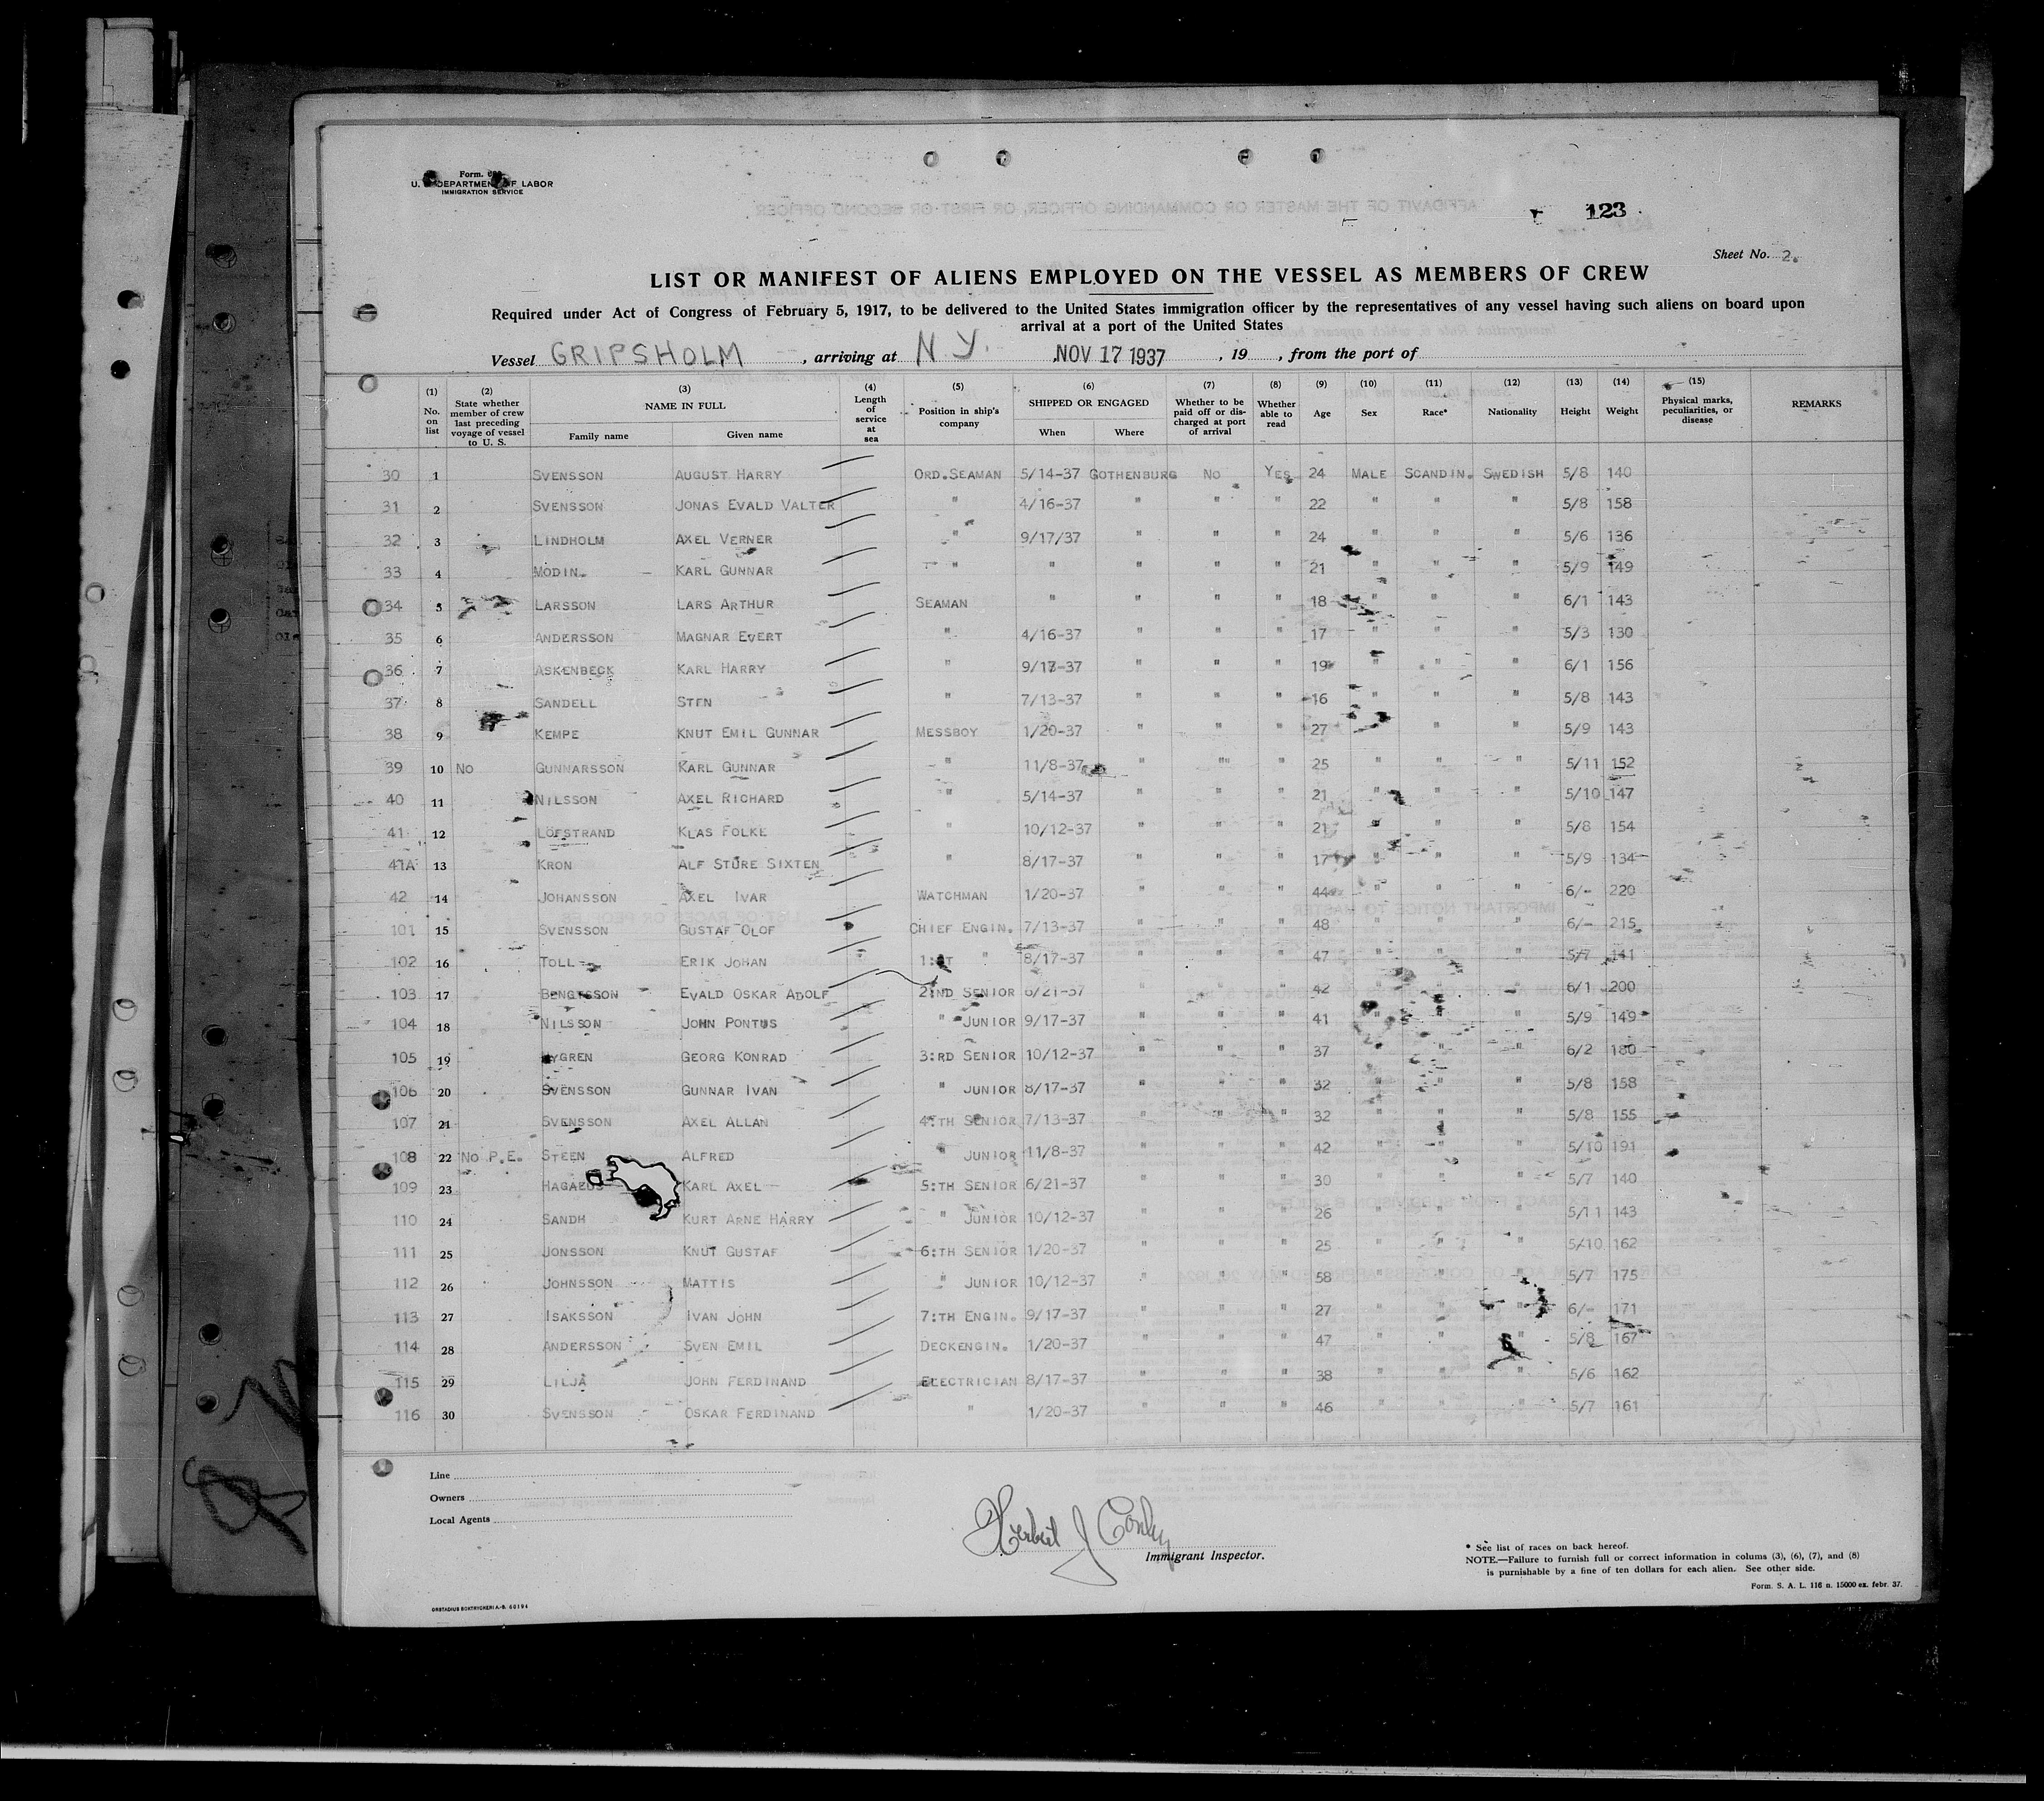 Form. 680
U. S. DEPARTMENT OF LABOR
IMMIGRATION SERVICE
123
Sheet No. 2.
LIST OR MANIFEST OF ALIENS EMPLOYED ON THE VESSEL AS MEMBERS OF CREW
Required under Act of Congress of February 5, 1917, to be delivered to the United States immigration officer by the representatives of any vessel having such aliens on board upon
arrival at a port of the United States
Vessel GRIPSHOLM, arriving at N Y. NOV 17 1937, 19, from the port of
(1) No. on list (2) State whether member of crew last preceding voyage of vessel to U. S. (3) NAME IN FULL Family name Given name (4) Length of service at sea (5) Position in ship's company (6) SHIPPED OR ENGAGED When Where (7) Whether to be paid off or discharged at port of arrival (8) Whether able to read (9) Age (10) Sex (11) Race* (12) Nationality (13) Height (14) Weight (15) Physical marks, peculiarities, or disease REMARKS
30 1 SVENSSON AUGUST HARRY ORD.SEAMAN 5/14-37 GOTHENBURG NO YES 24 MALE SCANDIN. SWEDISH 5/8 140
31 2 SVENSSON JONAS EVALD VALTER " 4/16-37 " " " 22 " " " 5/8 158
32 3 LINDHOLM AXEL VERNER " 9/17/37 " " " 24 " " " 5/6 136
33 4 MODIN. KARL GUNNAR " " " " " 21 " " " 5/9 149
34 5 LARSSON LARS ARTHUR SEAMAN " " " " 18 " " " 6/1 143
35 6 ANDERSSON MAGNAR EVERT " 4/16-37 " " " 17 " " " 5/3 130
36 7 ASKENBECK KARL HARRY " 9/17-37 " " " 19 " " " 6/1 156
37 8 SANDELL STEN " 7/13-37 " " " 16 " " " 5/8 143
38 9 KEMPE KNUT EMIL GUNNAR MESSBOY 1/20-37 " " " 27 " " " 5/9 143
39 10 NO GUNNARSSON KARL GUNNAR " 11/8-37 " " " 25 " " " 5/11 152
40 11 NILSSON AXEL RICHARD " 5/14-37 " " " 21 " " " 5/10 147
41 12 LÖFSTRAND KLAS FOLKE " 10/12-37 " " " 21 " " " 5/8 154
41A 13 KRON ALF STURE SIXTEN " 8/17-37 " " " 17 " " " 5/9 134
42 14 JOHANSSON AXEL IVAR WATCHMAN 1/20-37 " " " 44 " " " 6/- 220
101 15 SVENSSON GUSTAF OLOF CHIEF ENGIN. 7/13-37 " " " 48 " " " 6/- 215
102 16 TOLL ERIK JOHAN 1:ST " 8/17-37 " " " 47 " " " 5/7 141
103 17 BENGTSSON EVALD OSKAR ADOLF 2:ND SENIOR 6/21-37 " " " 42 " " " 6/1 200
104 18 NILSSON JOHN PONTUS " JUNIOR 9/17-37 " " " 41 " " " 5/9 149
105 19 GEORG KONRAD 3:RD SENIOR 10/12-37 " " " 37 " " " 6/2 180
106 20 SVENSSON GUNNAR IVAN " JUNIOR 8/17-37 " " " 32 " " " 5/8 158
107 21 SVENSSON AXEL ALLAN 4:TH SENIOR 7/13-37 " " " 32 " " " 5/8 155
108 22 NO P.E. STEEN ALFRED " JUNIOR 11/8-37 " " " 42 " " " 5/10 191
109 23 HAGAEUS KARL AXEL 5:TH SENIOR 6/21-37 " " " 30 " " " 5/7 140
110 24 SANDH KURT ARNE HARRY " JUNIOR 10/12-37 " " " 26 " " " 5/11 143
111 25 JONSSON KNUT GUSTAF 6:TH SENIOR 1/20-37 " " " 25 " " " 5/10 162
112 26 JOHNSSON MATTIS " JUNIOR 10/12-37 " " " 58 " " " 5/7 175
113 27 ISAKSSON IVAN JOHN 7:TH ENGIN. 9/17-37 " " " 27 " " " 6/- 171
114 28 ANDERSSON SVEN EMIL DECKENGIN. 1/20-37 " " " 47 " " " 5/8 167
115 29 LILJA JOHN FERDINAND ELECTRICIAN 8/17-37 " " " 38 " " " 5/6 162
116 30 SVENSSON OSKAR FERDINAND " 1/20-37 " " " 46 " " " 5/7 161
Line
Owners
Local Agents
Herbert J Conly
Immigrant Inspector.
* See list of races on back hereof.
NOTE.—Failure to furnish full or correct information in colums (3), (6), (7), and (8)
is purnishable by a fine of ten dollars for each alien. See other side.
Form. S. A. L. 116 n. 15000 ex. febr. 37.
ORSTADIUS BOKTRYCKERI A.-B. 66194